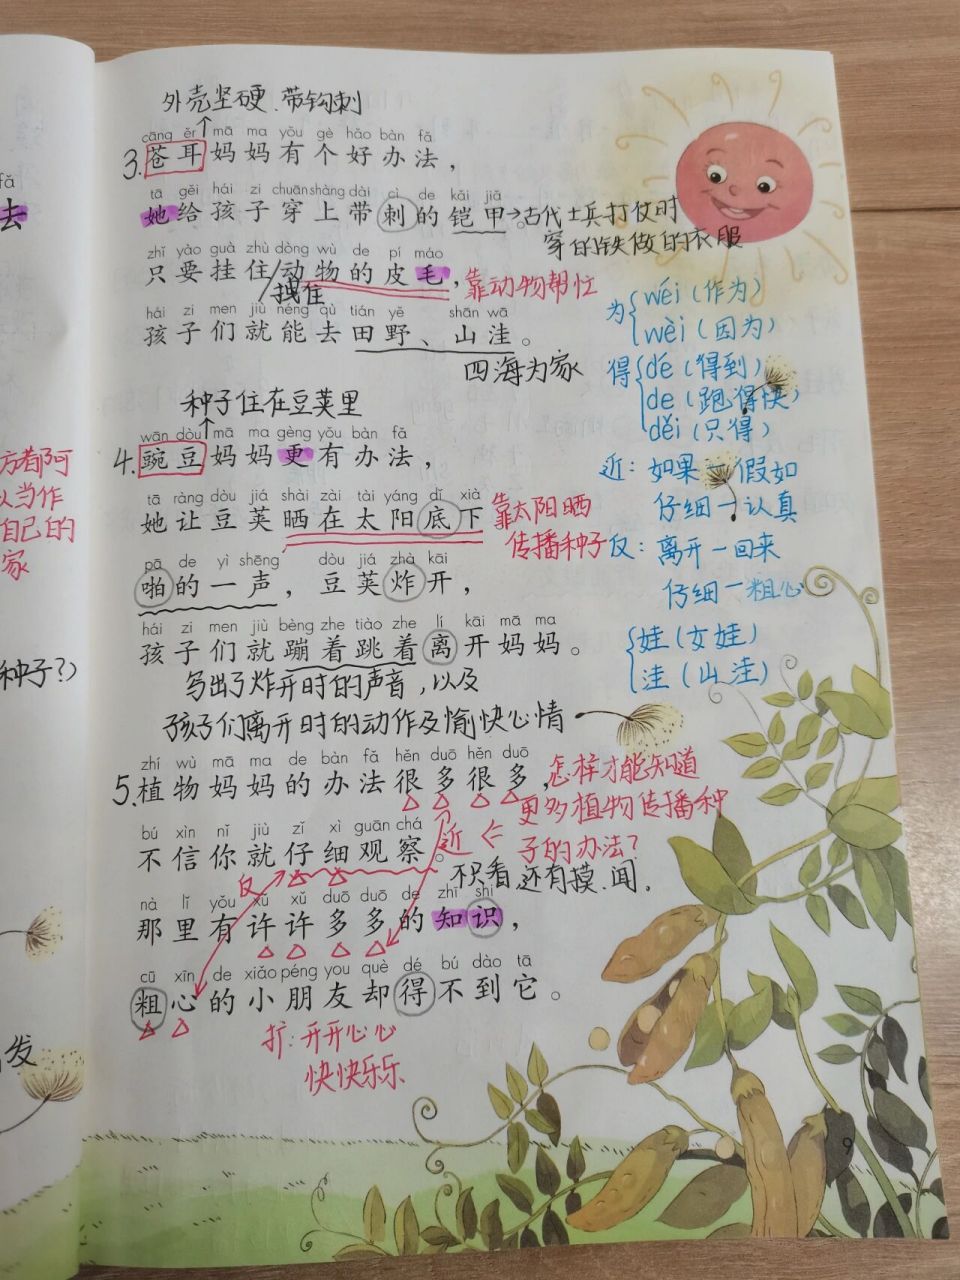 外壳坚硬、带钩刺
cāng ěr mā ma yǒu gè hǎo bàn fǎ
3.苍耳妈妈有个好办法，
tā gěi hái zi chuān shàng dài cì de kǎi jiǎ
她给孩子穿上带刺的铠甲。→古代士兵打仗时
穿的铁做的衣服
zhǐ yào guà zhù dòng wù de pí máo
只要挂住动物的皮毛，靠动物帮忙
拽住
hái zi men jiù néng qù tián yě shān wā
孩子们就能去田野、山洼。
四海为家
为 wéi（作为）
wèi（因为）
得 dé（得到）
de（跑得快）
děi（只得）
种子住在豆荚里
wān dòu mā ma gèng yǒu bàn fǎ
4.豌豆妈妈更有办法，
近：如果—假如
仔细—认真
tā ràng dòu jiá shài zài tài yáng dǐ xià
她让豆荚晒在太阳底下，靠太阳晒
传播种子
反：离开—回来
仔细—粗心
pā de yì shēng dòu jiá zhà kāi
啪的一声，豆荚炸开，
hái zi men jiù bèng zhe tiào zhe lí kāi mā ma
孩子们就蹦着跳着离开妈妈。
娃（女娃）
洼（山洼）
写出了炸开时的声音，以及
孩子们离开时的动作及愉快心情
zhí wù mā ma de bàn fǎ hěn duō hěn duō
5.植物妈妈的办法很多很多，怎样才能知道
更多植物传播种
子的办法？
bú xìn nǐ jiù zǐ xì guān chá
不信你就仔细观察。
近
不只看还有摸、闻。
反
nà lǐ yǒu xǔ xǔ duō duō de zhī shi
那里有许许多多的知识，
cū xīn de xiǎo péng you què dé bú dào tā
粗心的小朋友却得不到它。
扩：开开心心
快快乐乐
9
fǎ
去
方都阿
以当作
自己的
家
种子？）
发